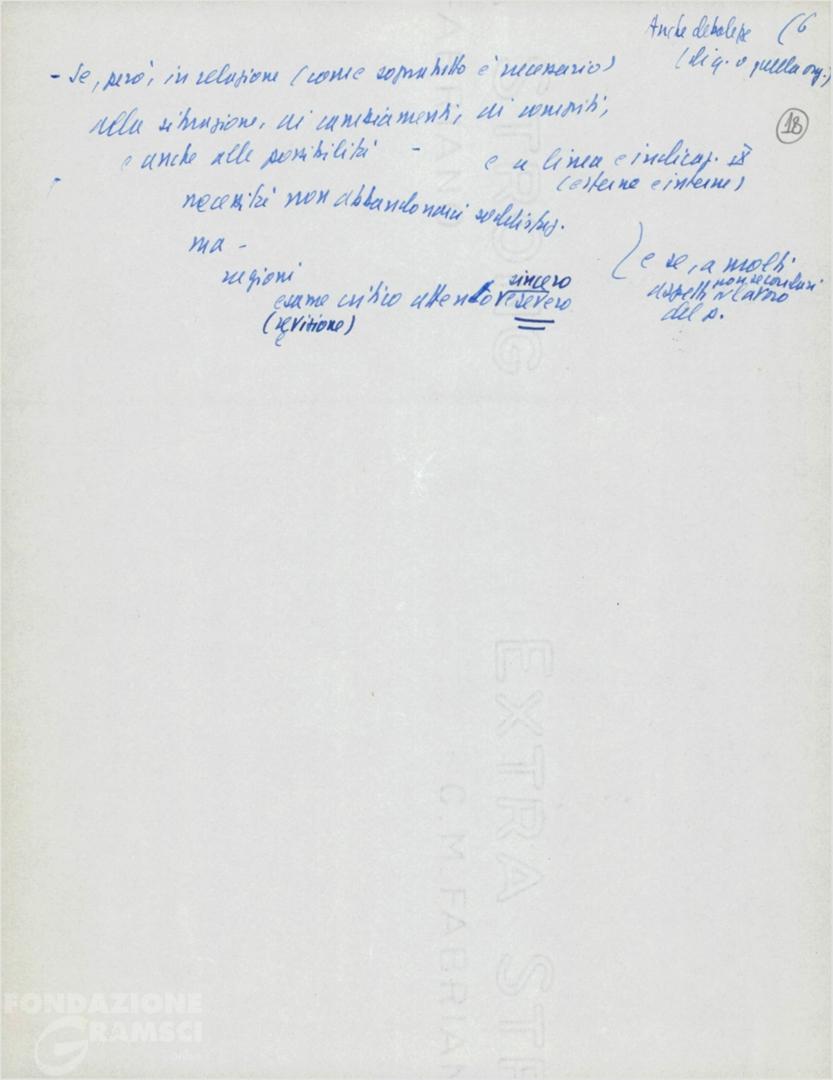 Anche debolezze (6
(di q. o quella org.)
18
- Se, però, in relazione (come soprattutto è necessario)
alla situazione, ai cambiamenti, ai compiti,
e anche alle possibilità -
e a linea e indicaz. IX
(esterne e interne)
necessità non abbandonarci soddisfaz.
ma -
ragioni
esame critico attento e severo
sincero
(revisione)
e se, a molti
aspetti non secondari
il lavoro
del p.
EXTRA STRONG
C.M. FABRIANO
FONDAZIONE
GRAMSCI